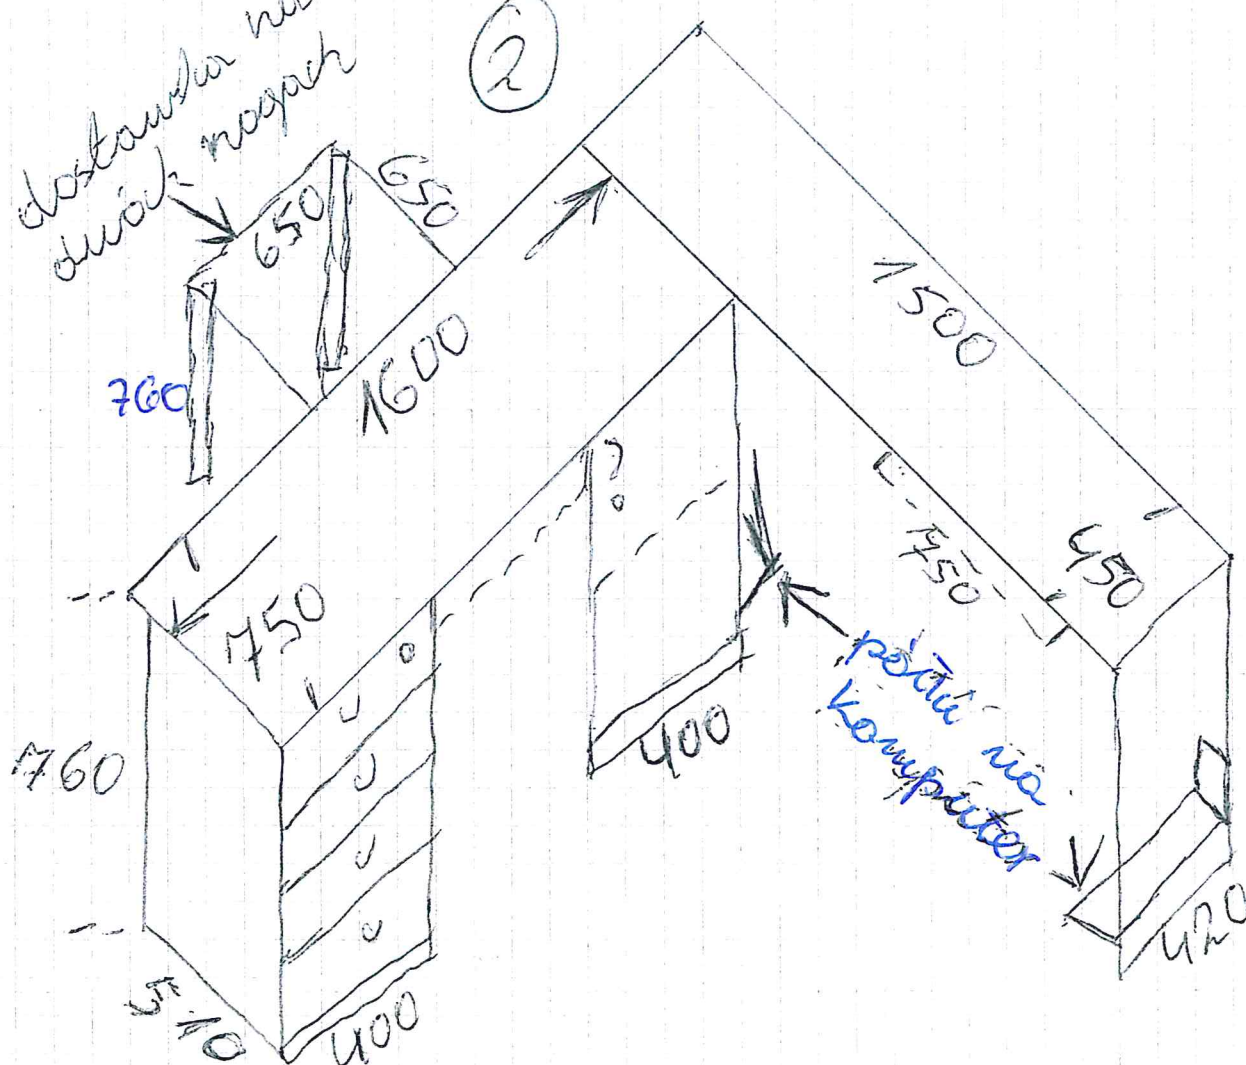 dostawka na
dwóch nogach
2
650
650
760
1600
1500
?
750
450
750
760
400
półki na
komputer
510
400
420